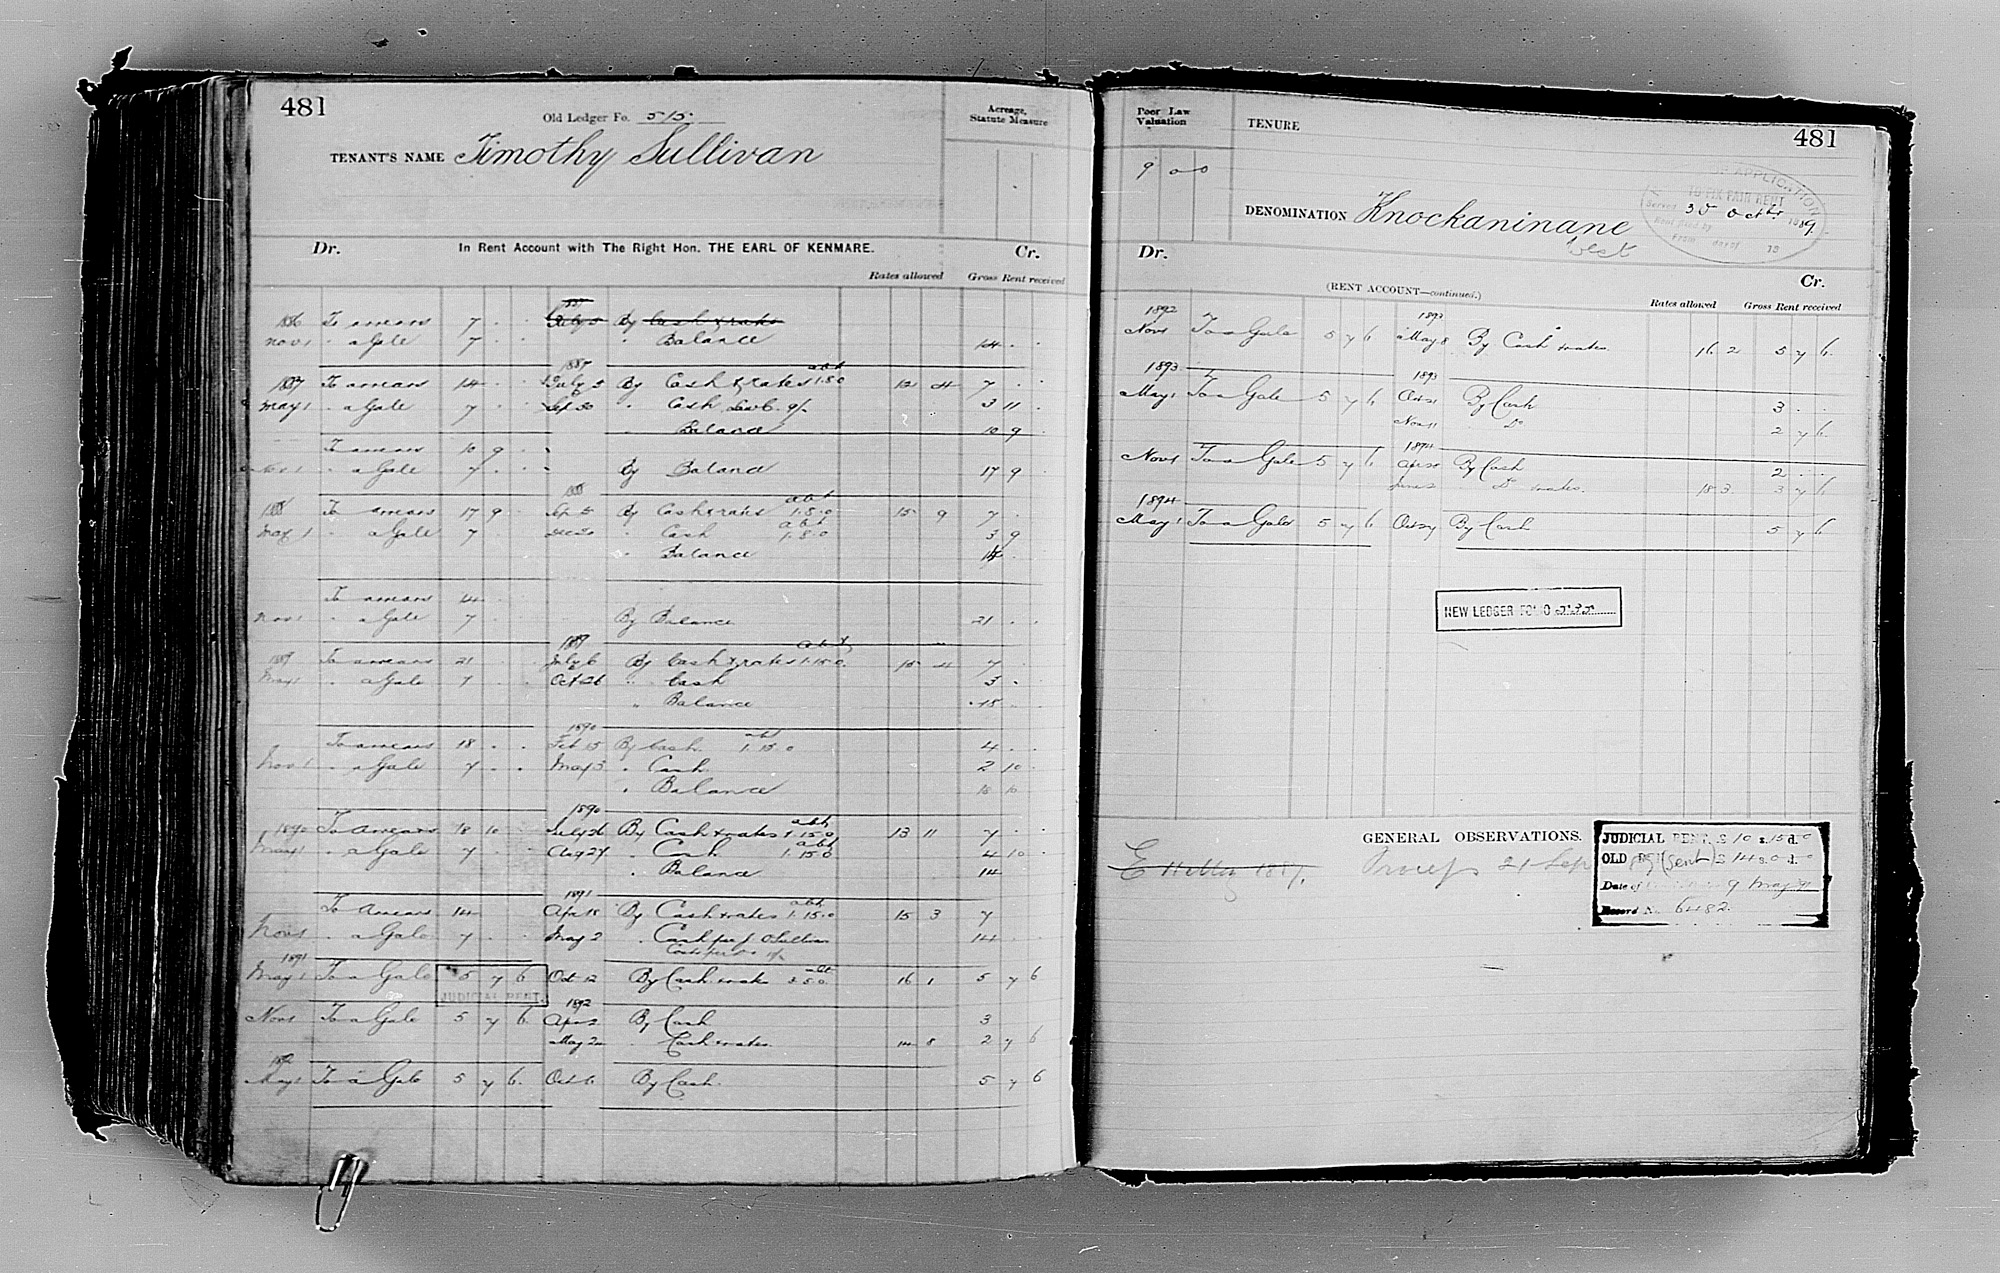 481
Old Ledger Fo. 515.
TENANT'S NAME Timothy Sullivan
Acreage,
Statute Measure
Dr. In Rent Account with The Right Hon. THE EARL OF KENMARE. Cr.
Rates allowed Gross Rent received
1886 To arrears 7 July 5 By Cash & rates
Nov 1 " a Gale 7 " Balance 14
1887
1887 To arrears 14 July 5 By Cash & rates abt 1.8.0 12 4 7
May 1 " a Gale 7 Sep 30 " Cash 3 11
" Balance 10 9
To arrears 10 9
Nov 1 " a Gale 7 By Balance 17 9
1888
1888 To arrears 17 9 Sep 5 By Cash & rates abt 1.8.0 15 9 7
May 1 " a Gale 7 Dec 20 " Cash abt 1.8.0 3 9
" Balance 14
To arrears 14
Nov 1 " a Gale 7 By Balance 21
1889
1889 To arrears 21 July 6 By Cash & rates abt 1.15.0 15 4 7
May 1 " a Gale 7 Oct 26 " Cash 3
" Balance 18
1890
To arrears 18 Feb 15 By Cash abt 1.15.0 4
Nov 1 " a Gale 7 May 3 " Cash 2 10
" Balance 18 10
1890
1890 To arrears 18 10 July 26 By Cash & rates abt 1.15.0 13 11 7
May 1 " a Gale 7 Aug 27 " Cash abt 1.15.0 4 10
" Balance 14
1891
To arrears 14 Apr 18 By Cash & rates abt 1.15.0 15 3 7
Nov 1 " a Gale 7 May 2 " Cash per J OSullivan 14
1891
May 1 To a Gale 5 7 6 Oct 12 By Cash & rates abt 3.5.0 16 1 5 7 6
JUDICIAL RENT.
1892
Nov 1 To a Gale 5 7 6 Apr 2 By Cash 3
May 20 " Cash & rates 14 8 2 7 6
1892
May 1 To a Gale 5 7 6 Oct 6 By Cash 5 7 6
Poor Law
Valuation
9 0 0
TENURE
481
APPLICATION
TO FIX FAIR RENT
Served 30 Octr 1889
DENOMINATION Knockaninane
West
Dr. Cr.
(RENT ACCOUNT—continued.)
Rates allowed Gross Rent received
1892 1893
Nov 1 To a Gale 5 7 6 May 8 By Cash & rates 16 2 5 7 6
1893 1893
May 1 To a Gale 5 7 6 Oct 21 By Cash 3
Nov 11 Do 2 7 6
1894
Nov 1 To a Gale 5 7 6 Apr 28 By Cash 2
June 2 Do & rates 18 3 3 7 6
1894
May 1 To a Gale 5 7 6 Oct 27 By Cash 5 7 6
NEW LEDGER FOLIO
GENERAL OBSERVATIONS.
Process 21 Sep 1889 (Sent)
JUDICIAL RENT, £ 10 s. 15 d. 0
OLD £ 14 s. 0 d. 0
Date of 9 May 91
Record No. 6482.